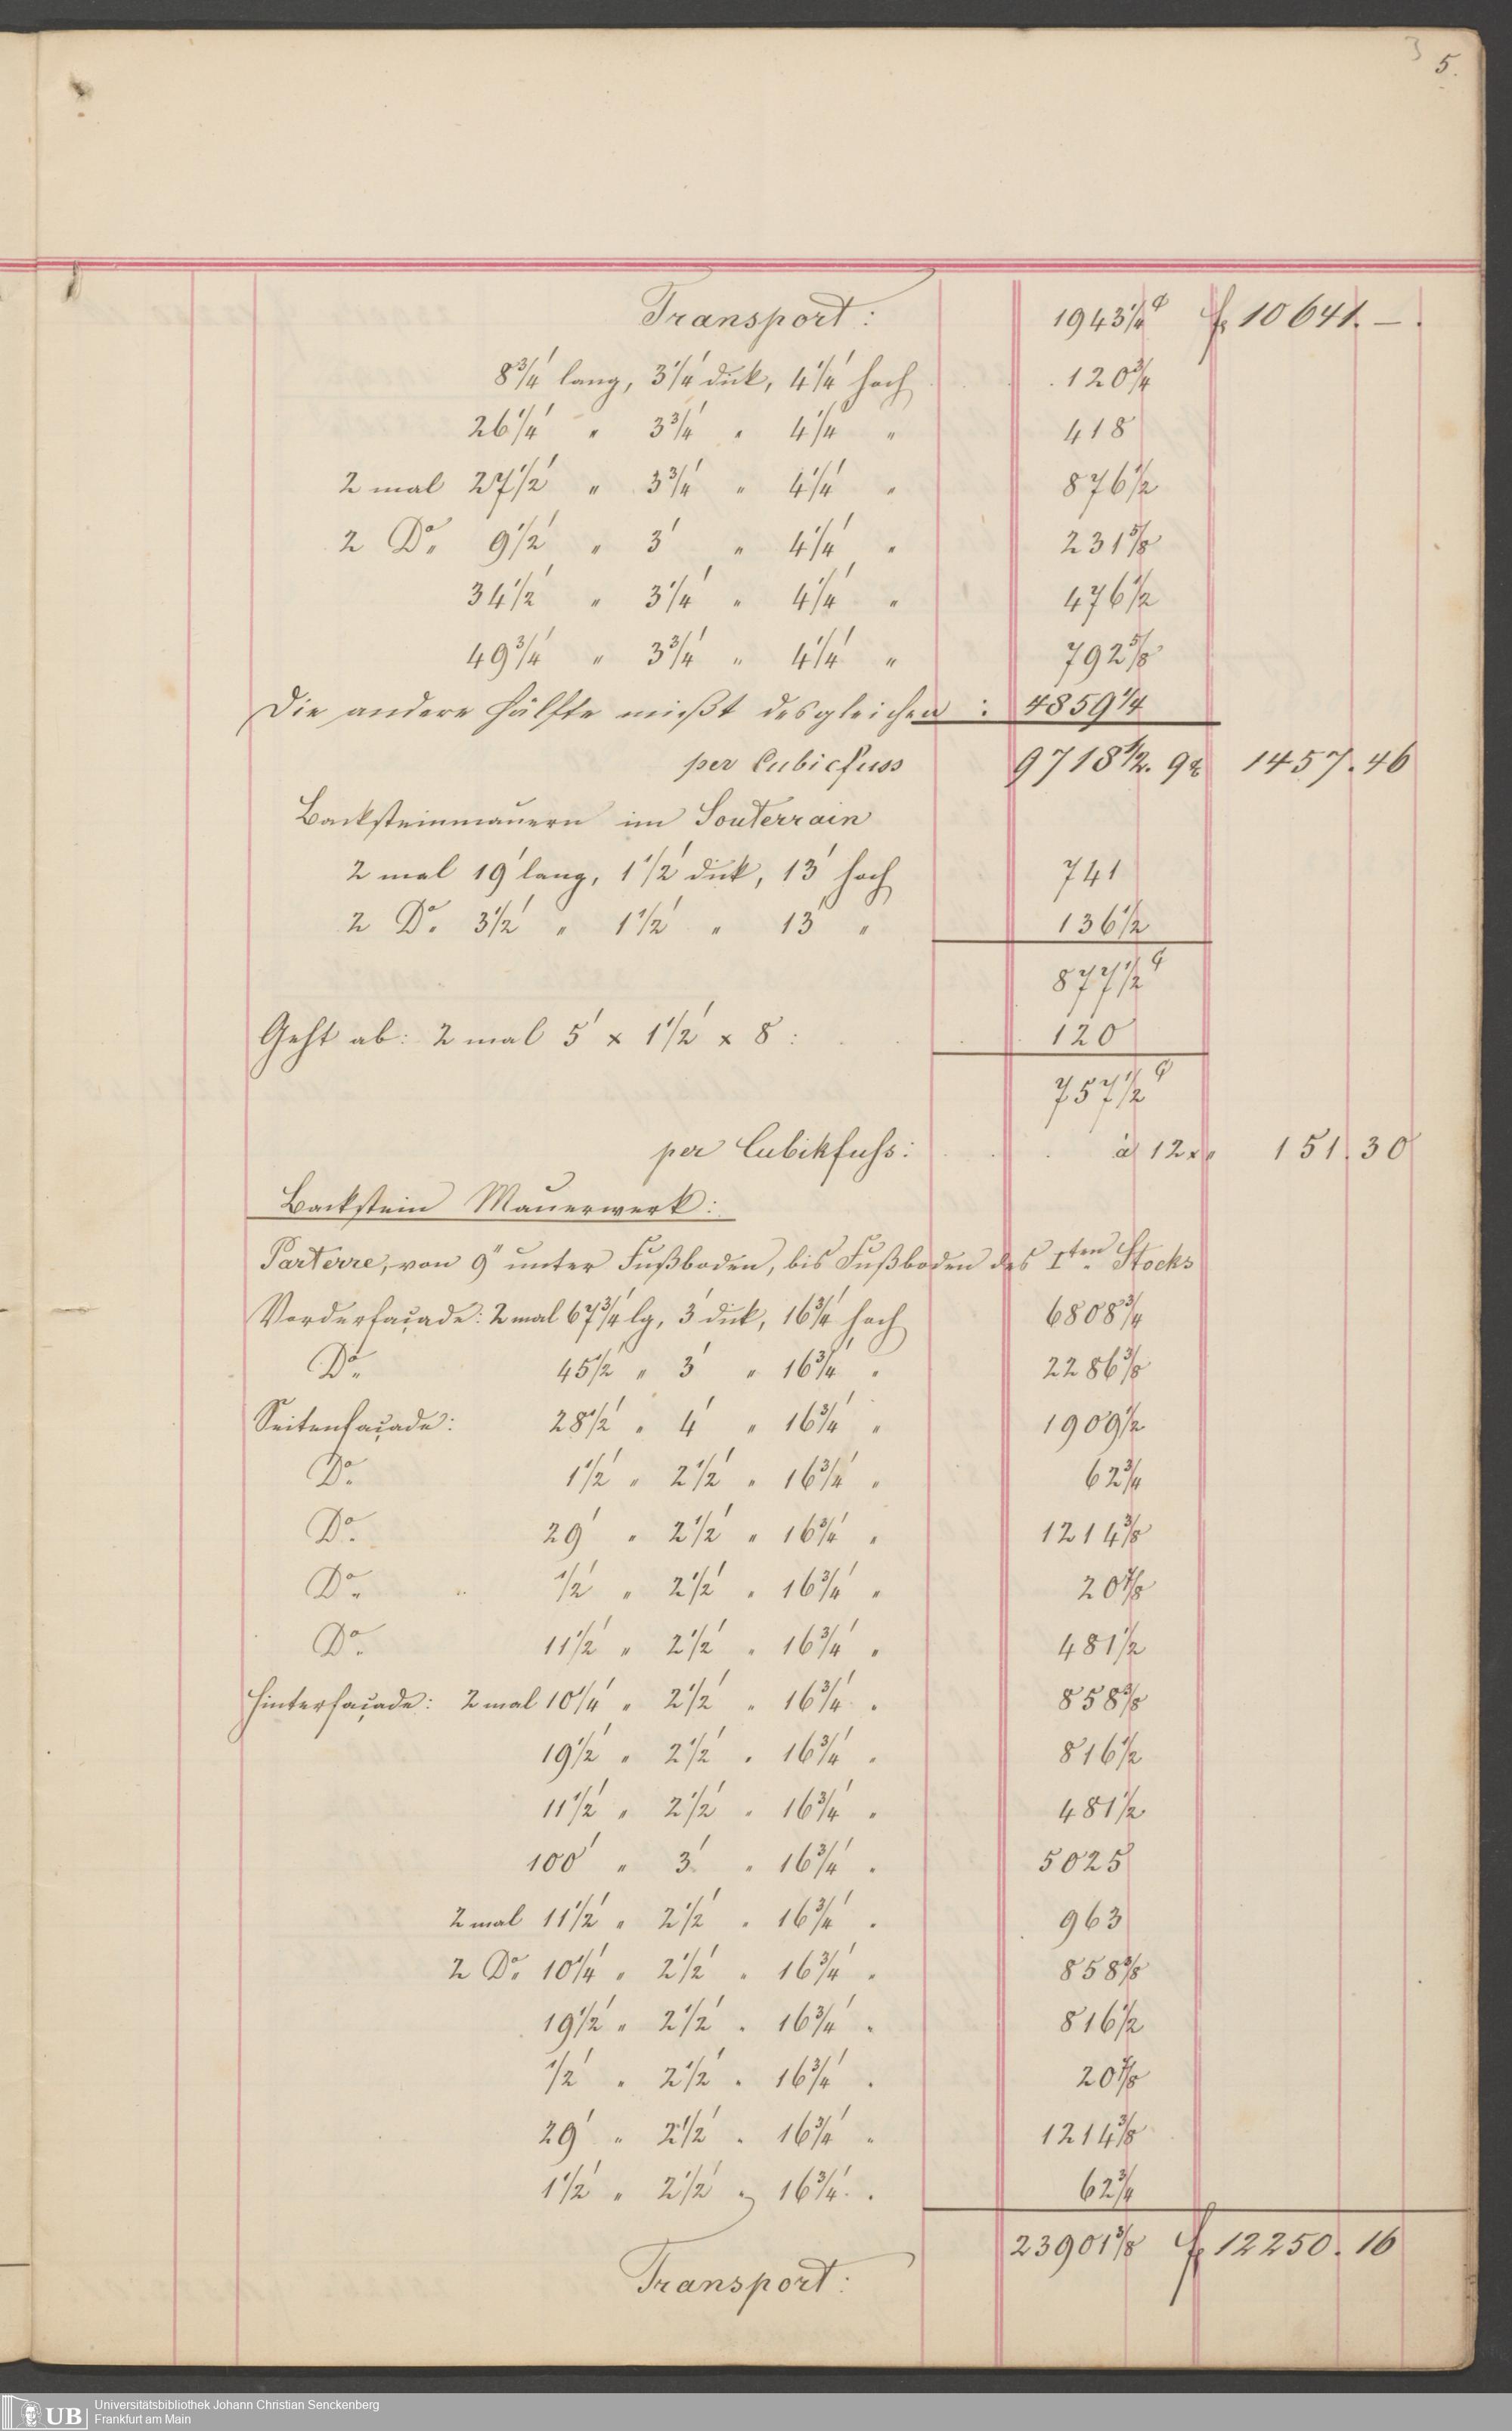 3 5.
Transport: 1943 1/4 f. 10641. – .
8 3/4' lang, 3 1/4' dick, 4 1/4' hoch 120 3/4
26 1/4' " 3 3/4' " 4 1/4' " 418
2 mal 27 1/2' " 3 3/4' " 4 1/4' " 876 1/2
2 Do. 9 1/2' " 3' " 4 1/4' " 231 5/8
34 1/2' " 3 1/4' " 4 1/4' " 476 1/2
49 3/4' " 3 3/4' " 4 1/4' " 792 5/8
Die andere Hälfte mißt desgleichen : 4859 1/4
per Cubicfuss 9718 1/2. 9x 1457.46
Backsteinmauern im Souterrain
2 mal 19' lang, 1 1/2' dick, 13' hoch 741
2 Do. 3 1/2' " 1 1/2' " 13' " 136 1/2
877 1/2
Geht ab: 2 mal 5' x 1 1/2' x 8 : 120
757 1/2
per Cubikfuss: à 12x. 151.30
Backstein Mauerwerk:
Parterre, von 9" unter Fußboden, bis Fußboden des Iten Stocks
Vorderfaçade: 2 mal 67 3/4' lg, 3' dick, 16 3/4' hoch 6808 3/4
Do. 45 1/2' " 3' " 16 3/4' " 2286 3/8
Seitenfaçade: 28 1/2' " 4' " 16 3/4' " 1909 1/2
Do. 1 1/2' " 2 1/2' " 16 3/4' " 62 3/4
Do. 29' " 2 1/2' " 16 3/4' " 1214 3/8
Do. 1/2' " 2 1/2' " 16 3/4' " 20 7/8
Do. 11 1/2' " 2 1/2' " 16 3/4' " 481 1/2
Hinterfaçade: 2 mal 10 1/4' " 2 1/2' " 16 3/4' " 858 3/8
19 1/2' " 2 1/2' " 16 3/4' " 816 1/2
11 1/2' " 2 1/2' " 16 3/4' " 481 1/2
100' " 3' " 16 3/4' " 5025
2 mal 11 1/2' " 2 1/2' " 16 3/4' " 963
2 Do. 10 1/4' " 2 1/2' " 16 3/4' " 858 3/8
19 1/2' " 2 1/2' " 16 3/4' " 816 1/2
1/2' " 2 1/2' " 16 3/4' " 20 7/8
29' " 2 1/2' " 16 3/4' " 1214 3/8
1 1/2' " 2 1/2' " 16 3/4' " 62 3/4
Transport: 23901 3/8 f. 12250.16
UB Universitätsbibliothek Johann Christian Senckenberg
Frankfurt am Main